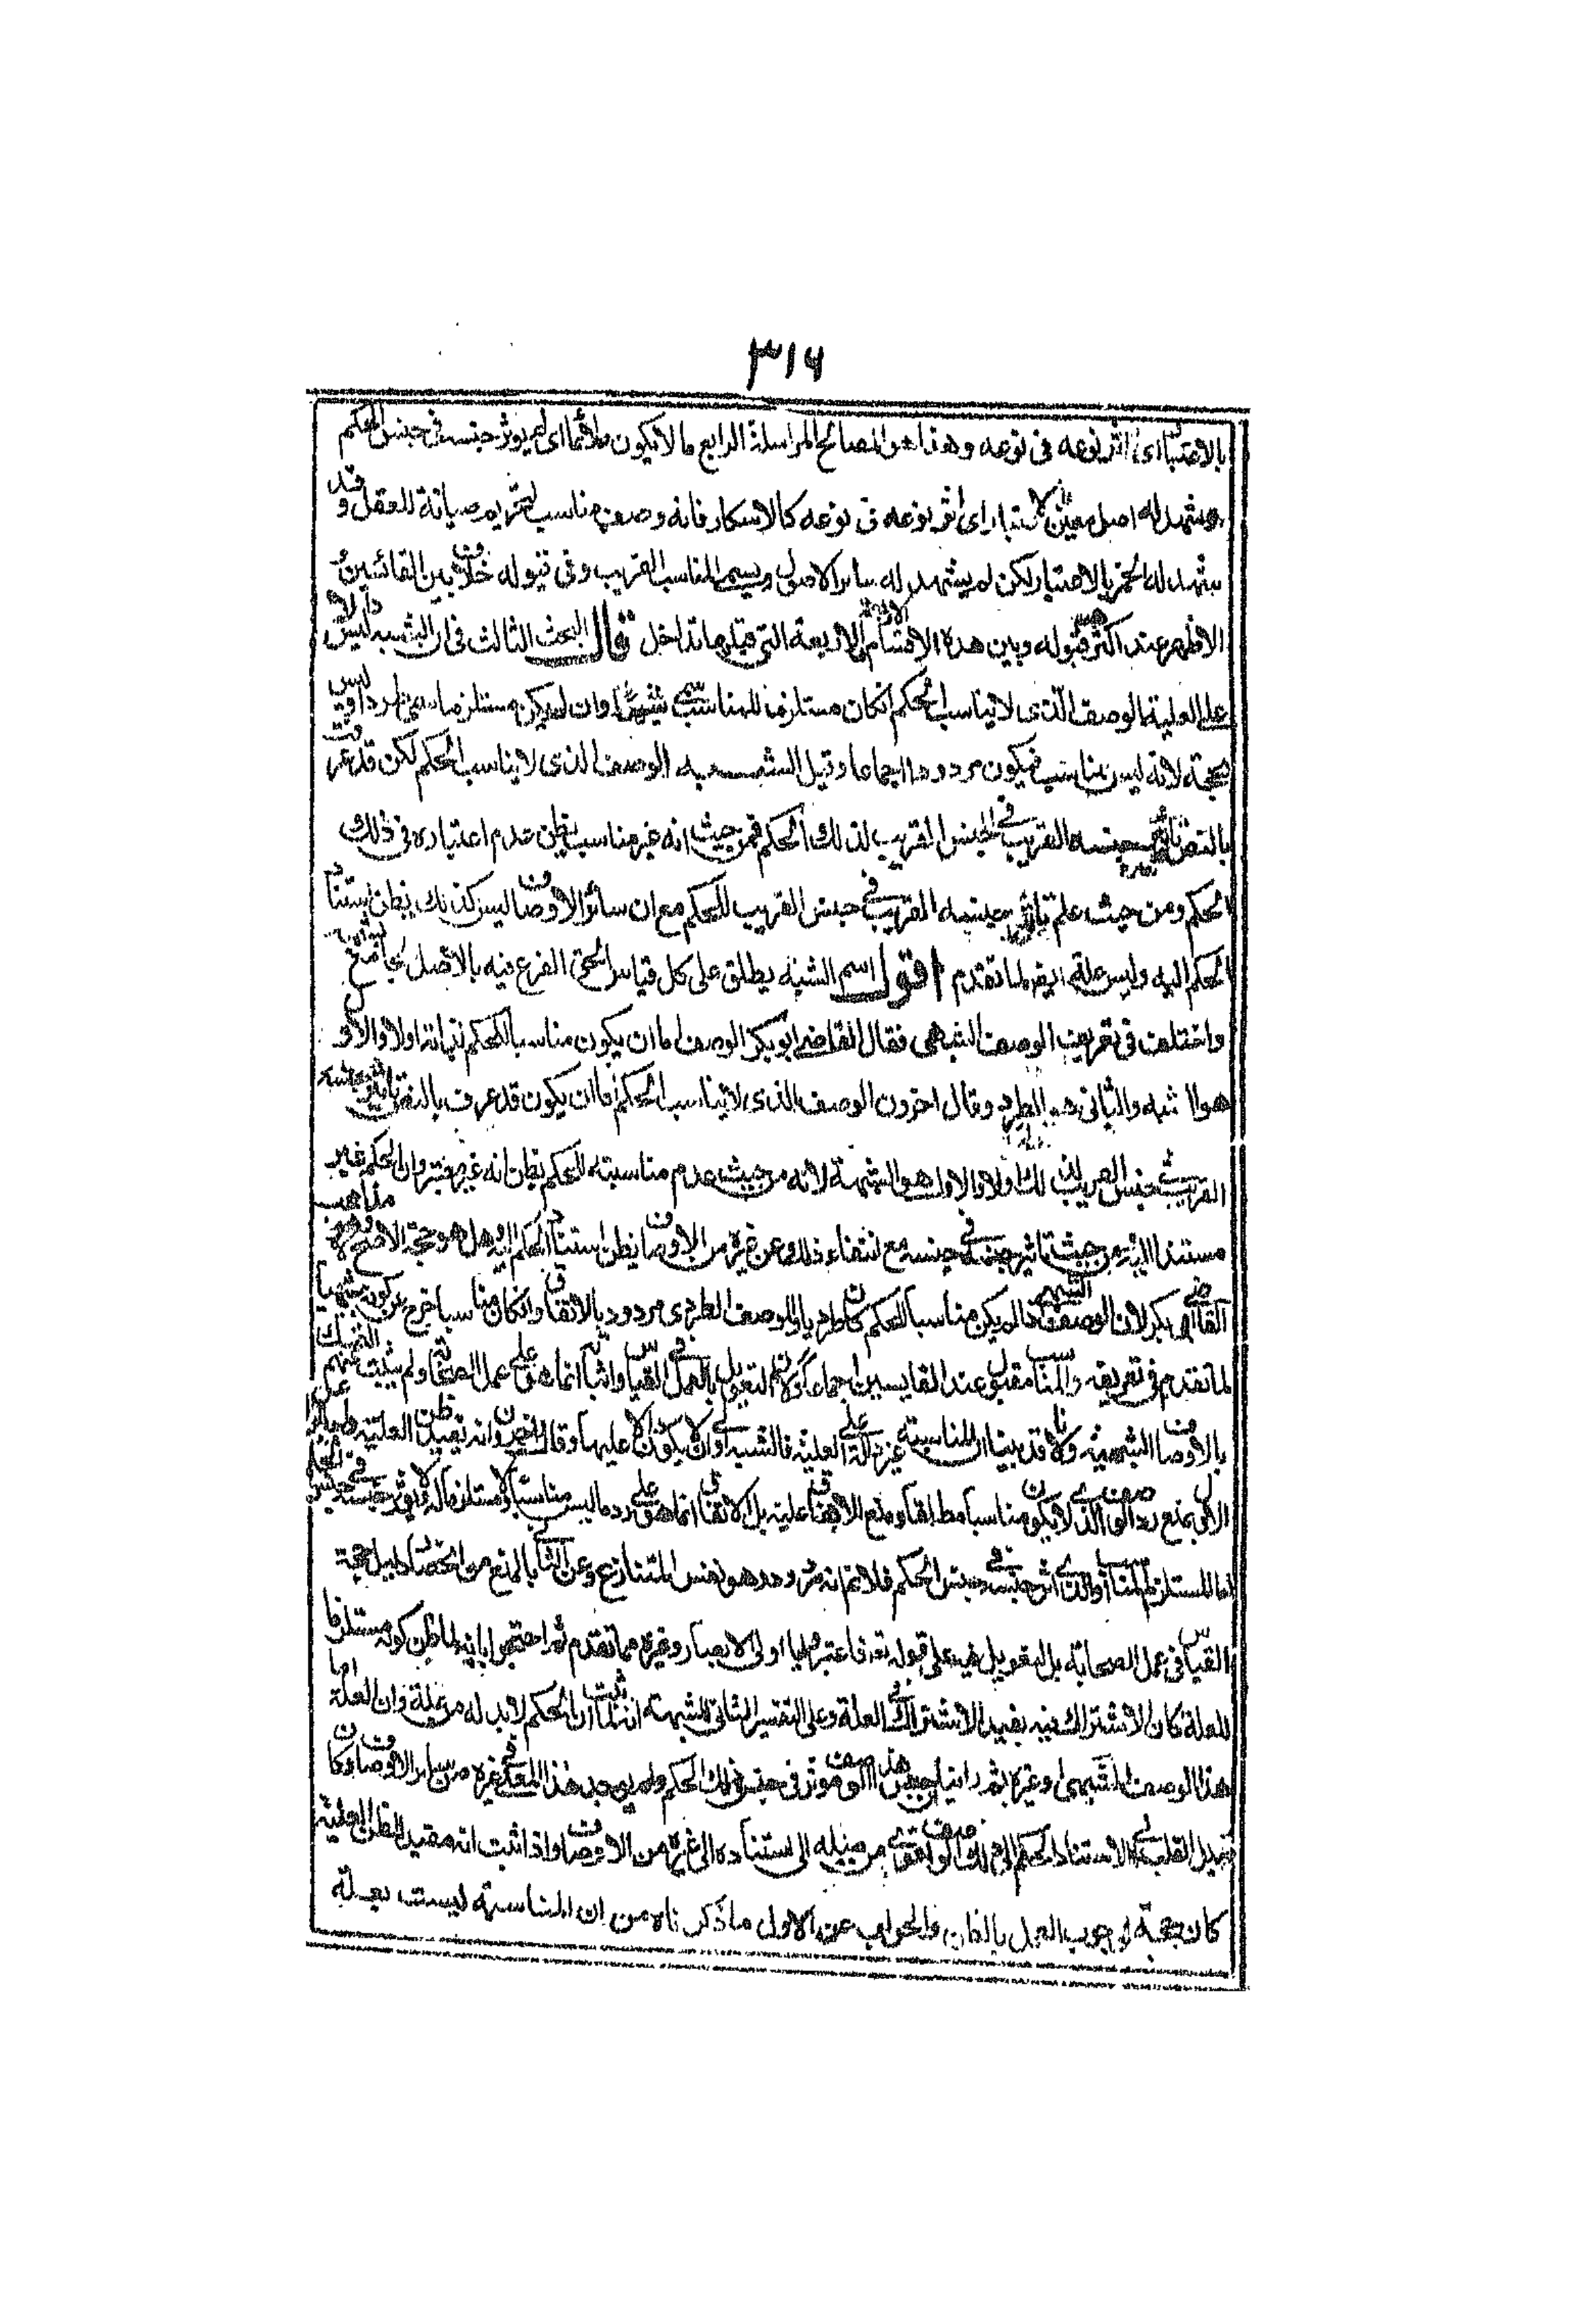 ٣١٦
بالاعتبار اى اثر نوعه فى نوعه وهذا هو المصالح المراسلة الرابع ما لا يكون ملائما اى لم يوثر جنسه فى جنس الحكم
ويشهد له اصل معين بالاعتبار اى اثر نوعه فى نوعه كالاسكار فانه وصف مناسب لتحريم صيانة للعقل وقد
شهد له الخمر بالاعتبار لكن لم يشهد له ساير الاصول ويسمى المناسب الغريب وفى قبوله خلاف بين القائسين و
الاظهر عند اكثرهم قبوله وبين هذه الاقسام الاربعة التى قبلها تداخل قال البحث الثالث فى ان الشبه ليس دالا
على العلية الوصف الذى لا يناسب الحكم ان كان مستلزما للمناسب سمى شبها وان لم يكن مستلزما سمى طردا وليس
بحجة لانه ليس بمناسب فيكون مردودا اجماعا وقيل الشبه الوصف الذى لا يناسب الحكم لكن قد عرفت
بالنص تاثير جنسه القريب فى الجنس القريب لذلك الحكم فمن حيث انه غير مناسب يظن عدم اعتباره فى ذلك
الحكم ومن حيث علم تاثير جنسه القريب فى جنس القريب للحكم مع ان سائر الاوصاف ليس كذلك يظن استناد
الحكم اليه وليس علة ايضا لما تقدم اقول اسم الشبه يطلق على كل قياس الحق الفرع فيه بالاصل بجامع
واختلف فى تعريف الوصف الشبهى فقال القاضى ابو بكر الوصف اما ان يكون مناسبا للحكم لذاته اولا والاول
هو الشبه والثانى هو الطرد وقال اخرون الوصف الذى لا يناسب الحكم اما ان يكون قد عرف بالنص تاثير جنسه
القريب فى جنس القريب لذلك اولا والاول هو الشبه لانه من حيث عدم مناسبته للحكم يظن انه غير معتبر وان الحكم غير
مستند اليه ومن حيث تاثير جنسه فى جنسه مع انتفاء ذلك عن غيره من الاوصاف يظن استناد الحكم اليه وهل هو حجة الاصح لا وهو مذاهب
القاضى ابو بكر لان الوصف الشبهى ان لم يكن مناسبا للحكم كان طرديا والوصف الطردى مردود بالاتفاق وان كان مناسبا خرج عن كونه شبهيا
لما تقدم فى تعريفه والمناسب مقبول عند القايسين اجماعا ولان التعويل بالعمل فى القياس واثباته انما هو على عمل الصحابة ولم يثبت عنهم التمسك
بالاوصاف الشبهية ولانا قد بينا ان المناسبة غير دالة على العلية فالشبه اولى ان لا يكون دالا عليها وقال اخرون انه يفيد ظن العلية
الاول بمنع رد الوصف الذى لا يكون مناسبا مطلقا ومنع الاتفاق عليه بل الاتفاق انما هو على رد ما ليس مناسبا ولا مستلزما له ولا يوثر جنسه فى جنس الحكم
اما المستلزم للمناسب او الذى اثر جنسه فى جنس الحكم فلا نم انه مردود وهو نفس المتنازع وعن الثانى بالمنع من انحصار دليل حجة
القياس فى عمل الصحابة بل التعويل فيه على قوله تعالى فاعتبروا يا اولى الابصار وغيره مما تقدم ثم احتجوا بانه لما ظن كونه مستلزما
للعلة كان الاشتراك فيه يفيد الاشتراك فى العلة وعلى التفسير الثانى للشبه انه لما ثبت ان الحكم لابد له من علة وان العلة اما
هذا الوصف الشبهى او غيره ثم راينا جنس هذا الوصف موثر فى جنس ذلك الحكم ولم يوجد هذا المعنى فى غيره من ساير الاوصاف كان
ميل القلب الى استناد الحكم الى ذلك الوصف اقوى من ميله الى استناده الى غيره من الاوصاف واذا ثبت انه مفيد للظن العلية
كان حجة لوجوب العمل بالظن والجواب عن الاول ما ذكرناه من ان المناسبة ليست بعلة